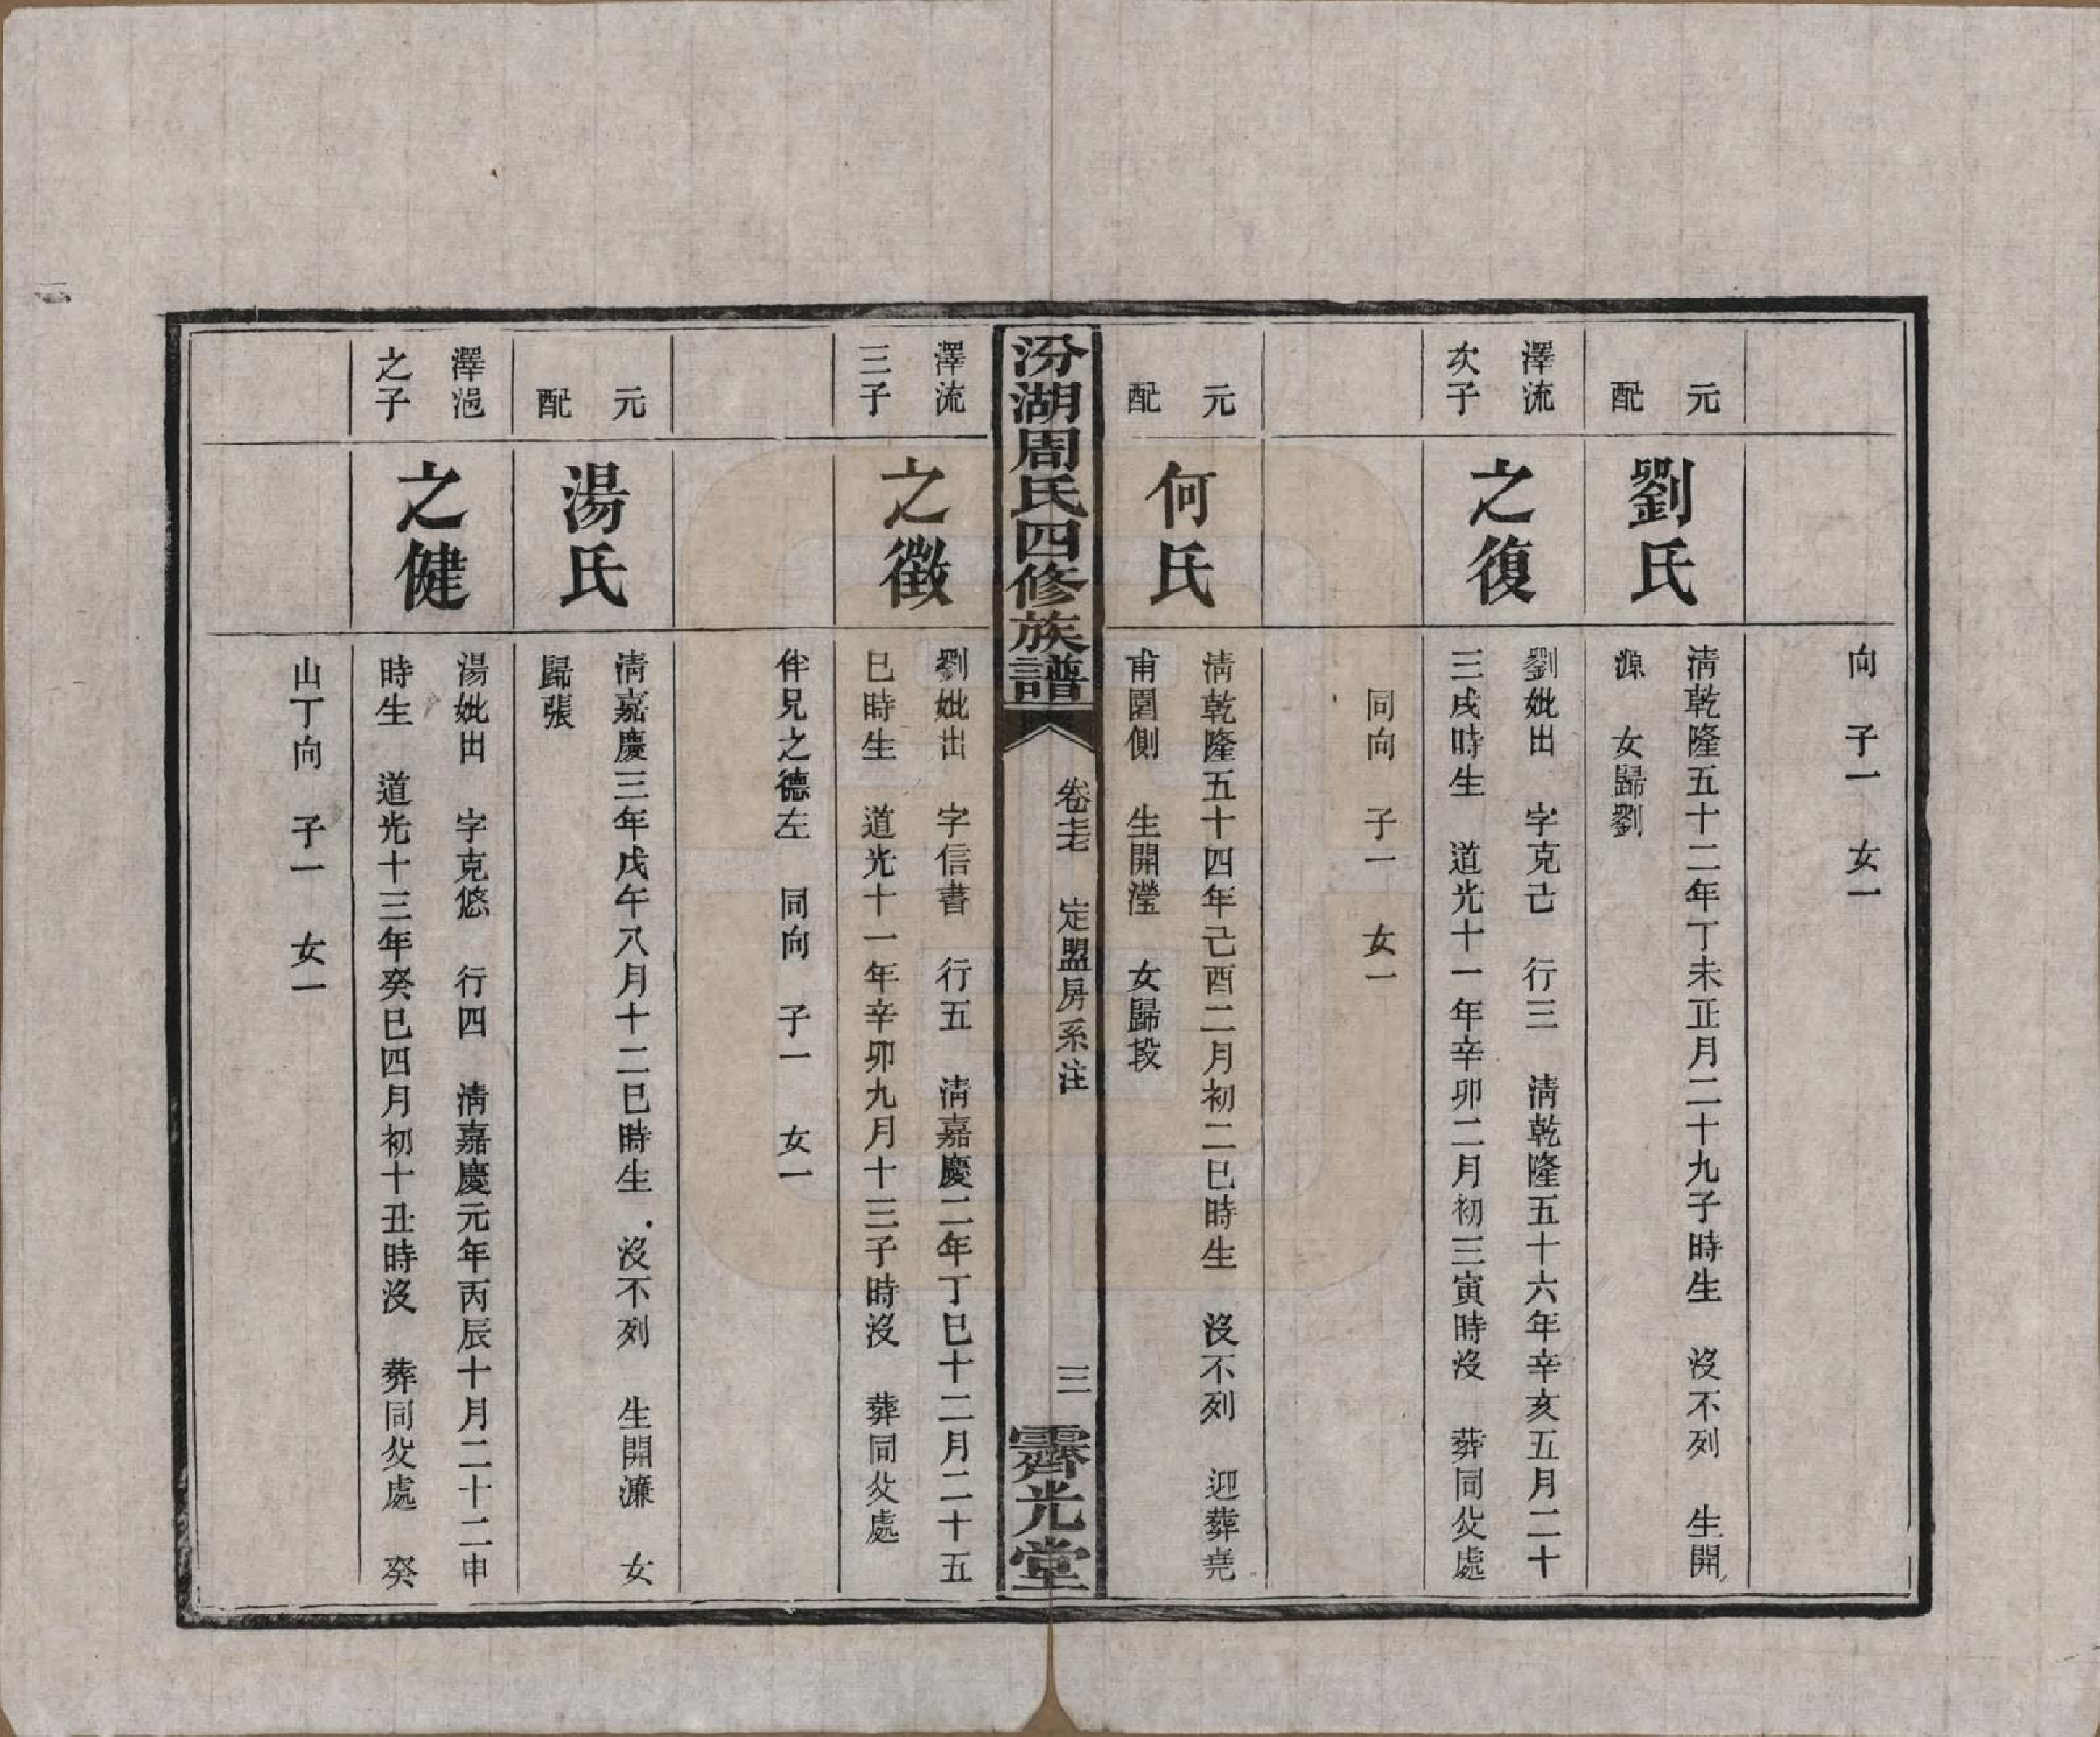 向　子一　女一
元
配
劉氏
清乾隆五十二年丁未正月二十九子時生　沒不列　生開
源　女歸劉
澤流
次子
之復
劉妣出　字克己　行三　清乾隆五十六年辛亥五月二十
三戌時生　道光十一年辛卯二月初三寅時沒　葬同父處
同向　子一　女一
元
配
何氏
清乾隆五十四年己酉二月初二巳時生　沒不列　迎葬堯
甫園側　生開瀅　女歸段
汾湖周氏四修族譜
定盟房系注
三
霽光堂
澤流
三子
之徵
劉妣出　字信書　行五　清嘉慶二年丁巳十二月二十五
巳時生　道光十一年辛卯九月十三子時沒　葬同父處
伴兄之德左　同向　子一　女一
元
配
湯氏
清嘉慶三年戊午八月十二巳時生　沒不列　生開濂　女
歸張
澤浥
之子
之健
湯妣出　字克悠　行四　清嘉慶元年丙辰十月二十二申
時生　道光十三年癸巳四月初十丑時沒　葬同父處　癸
山丁向　子一　女一